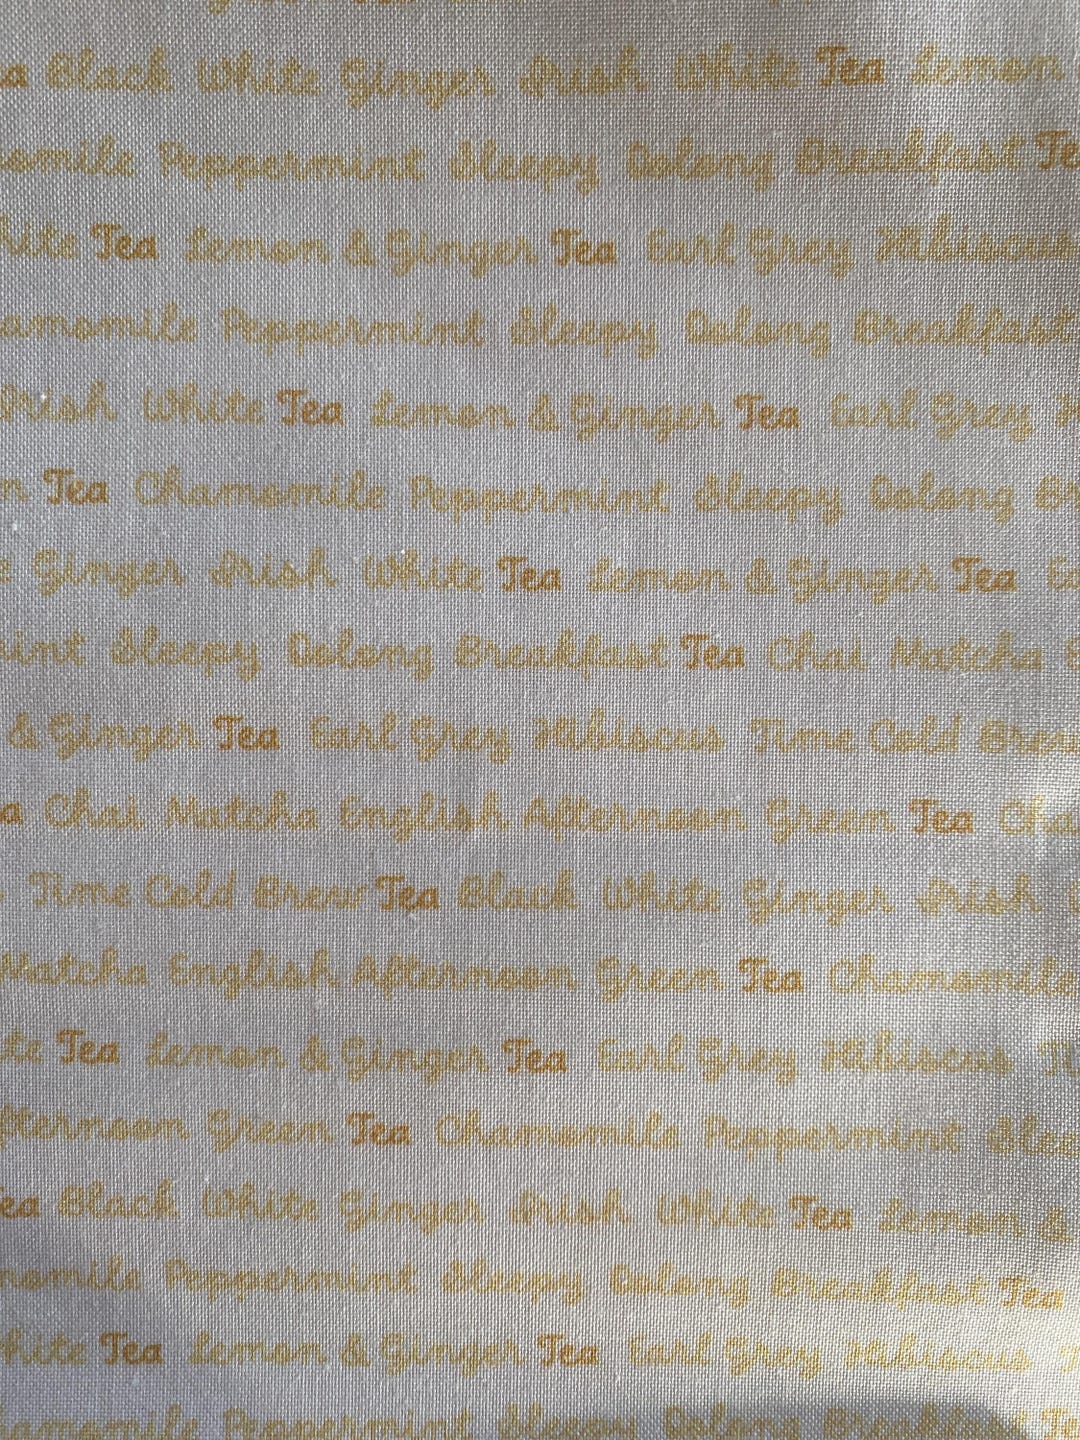 a Black White Ginger Irish White Tea Lemon
omile Peppermint Sleepy Oolong Breakfast Te
hite Tea Lemon & Ginger Tea Earl Grey Hibiscus
amomile Peppermint Sleepy Oolong Breakfast
Irish White Tea Lemon & Ginger Tea Earl Grey H
n Tea Chamomile Peppermint Sleepy Oolong Br
e Ginger Irish White Tea Lemon & Ginger Tea Ea
int Sleepy Oolong Breakfast Tea Chai Matcha E
& Ginger Tea Earl Grey Hibiscus Time Cold Brew
a Chai Matcha English Afternoon Green Tea Cha
Time Cold Brew Tea Black White Ginger Irish
Matcha English Afternoon Green Tea Chamomile
te Tea Lemon & Ginger Tea Earl Grey Hibiscus Ti
fternoon Green Tea Chamomile Peppermint Slee
ea Black White Ginger Irish White Tea Lemon &
momile Peppermint Sleepy Oolong Breakfast Tea
hite Tea Lemon & Ginger Tea Earl Grey Hibiscus
amomile Peppermint Sleepy Oolong Breakfast Te